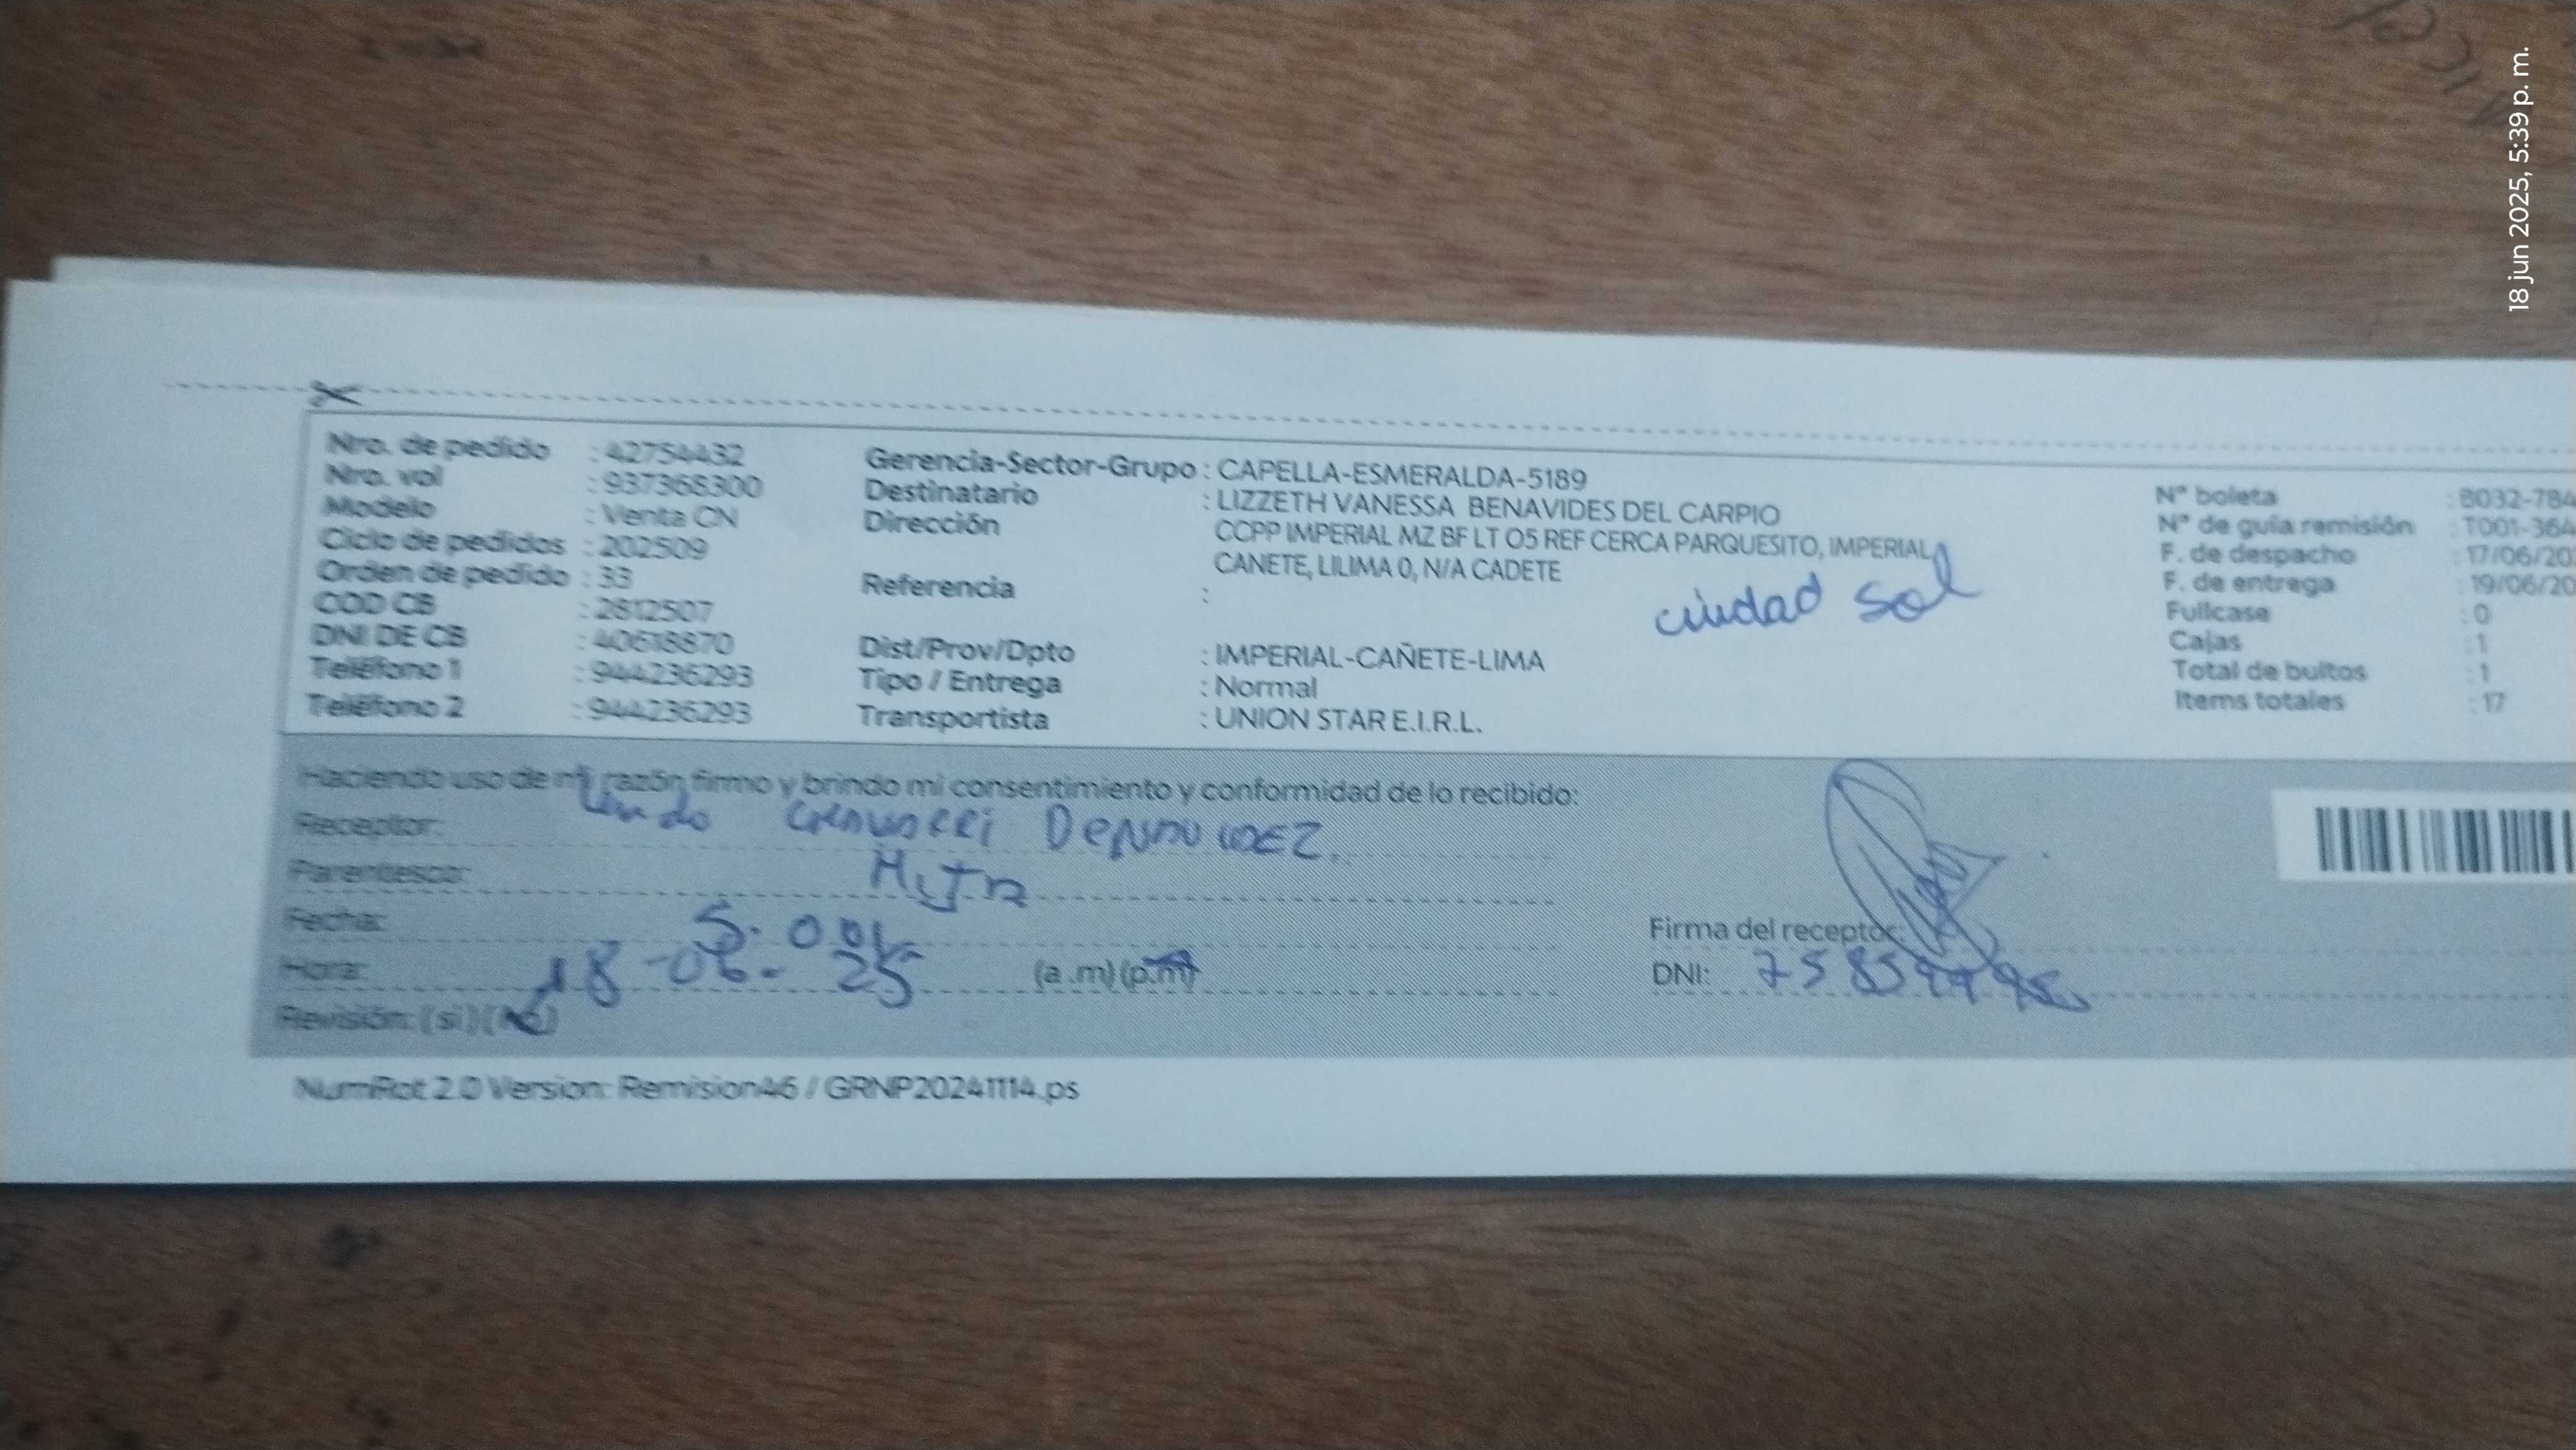 18 jun 2025, 5:39 p. m.
Nro. de pedido : 42754432
Nro. vol : 937368300
Modelo : Venta CN
Ciclo de pedidos : 202509
Orden de pedido : 33
COD CB : 2812507
DNI DE CB : 40618870
Teléfono 1 : 944236293
Teléfono 2 : 944236293
Gerencia-Sector-Grupo : CAPELLA-ESMERALDA-5189
Destinatario : LIZZETH VANESSA BENAVIDES DEL CARPIO
Dirección CCPP IMPERIAL MZ BF LT O5 REF CERCA PARQUESITO, IMPERIAL
CANETE, LILIMA 0, N/A CADETE
Referencia :
ciudad sol
Dist/Prov/Dpto : IMPERIAL-CAÑETE-LIMA
Tipo / Entrega : Normal
Transportista : UNION STAR E.I.R.L.
N° boleta : B032-784
N° de guía remisión : T001-364
F. de despacho : 17/06/20
F. de entrega : 19/06/20
Fullcase : 0
Cajas : 1
Total de bultos : 1
Items totales : 17
Haciendo uso de mi razón firmo y brindo mi consentimiento y conformidad de lo recibido:
Receptor:
Parentesco:
Fecha:
Hora: 18-06-25 (a.m) (p.m)
Revisión: (si) (no)
Firma del receptor:
DNI:
NumRot 2.0 Version: Remision46 / GRNP20241114.ps